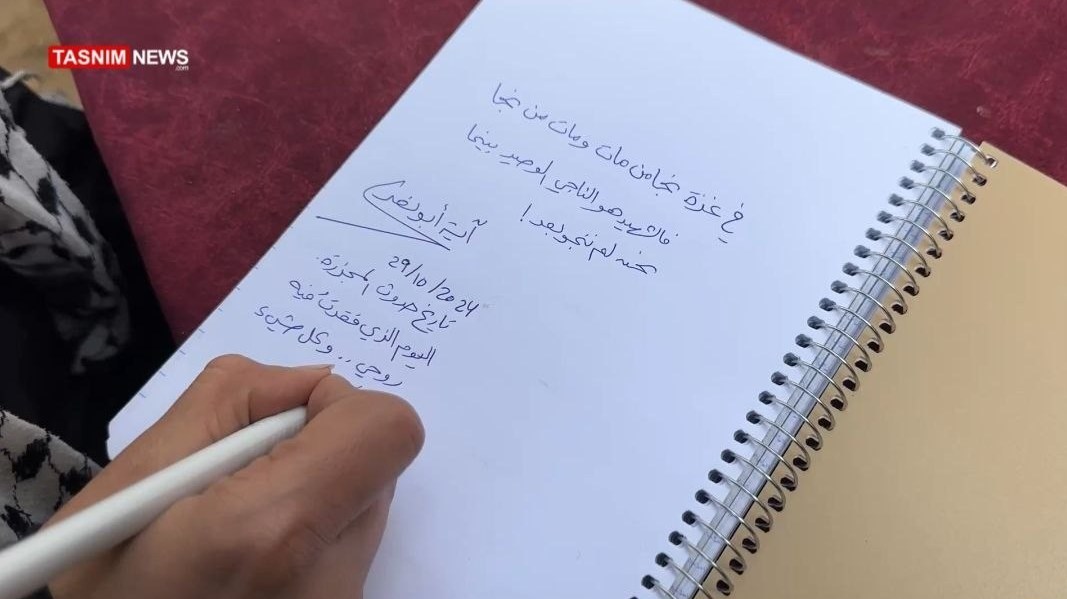 TASNIM NEWS
.com
في غزة نجا من مات ومات من نجا
فالشهيد هو الناجي الوحيد بينما
نحن لم ننجو بعد!
آية أبو نصر
29/10/2024
تاريخ حدوث المجزرة.
اليوم الذي فقدتُ فيه
روحي .. وكل شيء